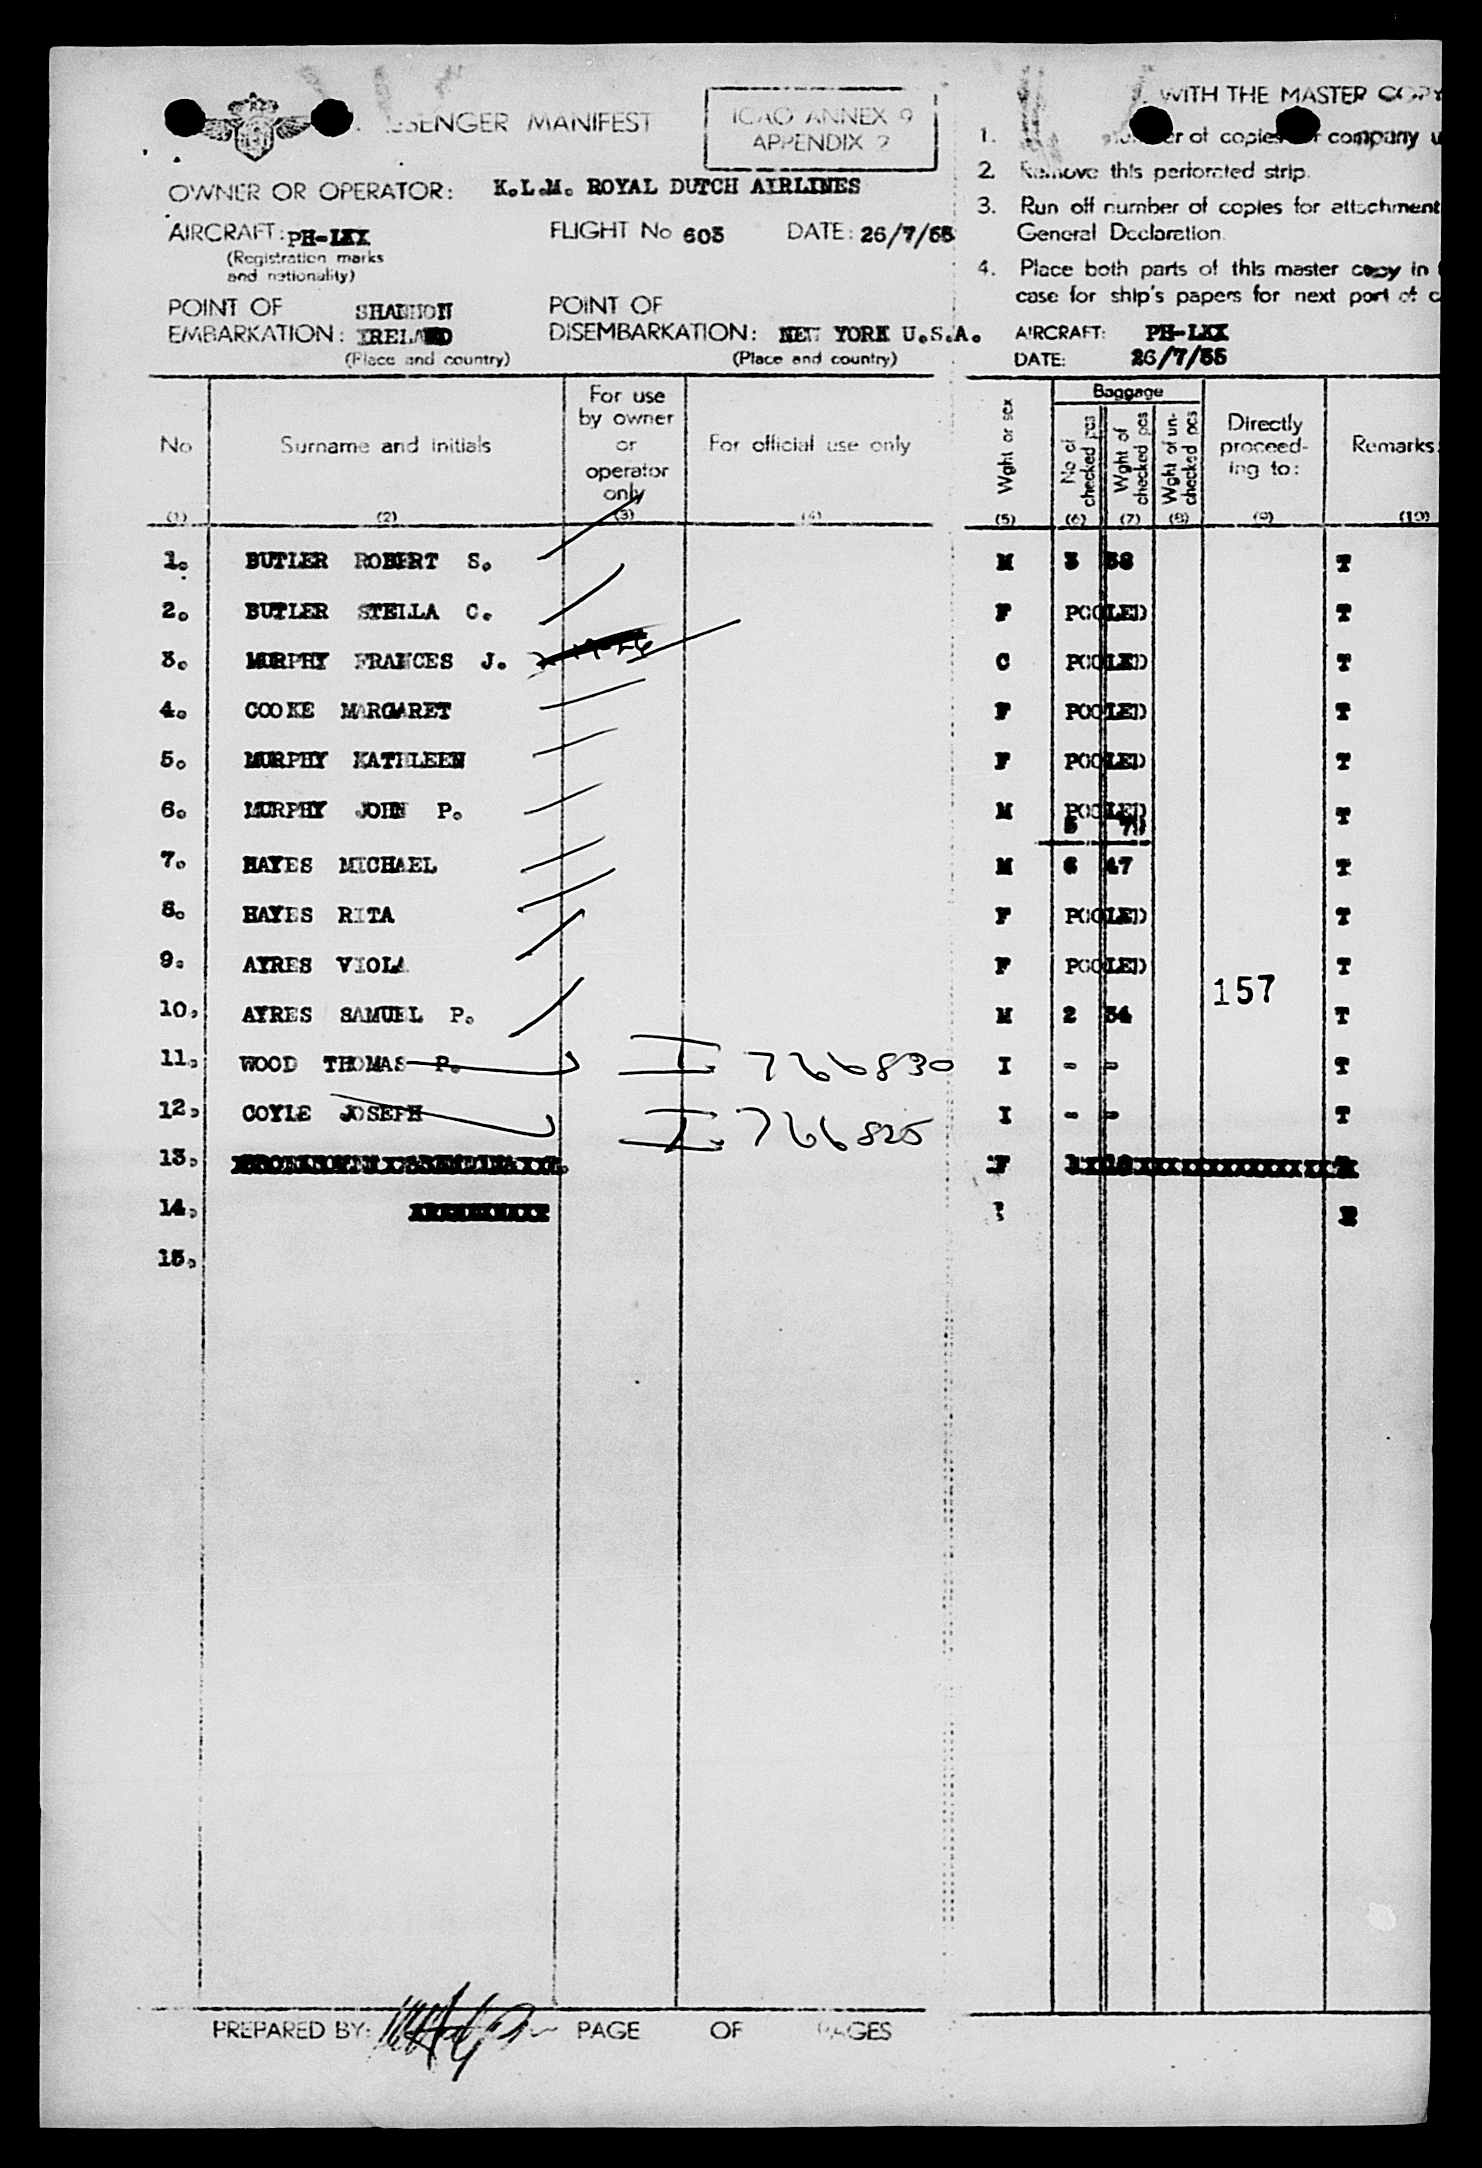 PASSENGER MANIFEST
ICAO ANNEX 9
APPENDIX 2
OWNER OR OPERATOR: K.L.M. ROYAL DUTCH AIRLINES
AIRCRAFT: PH-LKX FLIGHT No 603 DATE: 26/7/55
(Registration marks
and nationality)
POINT OF SHANNON POINT OF
EMBARKATION: IRELAND DISEMBARKATION: NEW YORK U.S.A.
(Place and country) (Place and country)
WITH THE MASTER COPY
1. number of copies for company u
2. Remove this perforated strip.
3. Run off number of copies for attachment
General Declaration.
4. Place both parts of this master copy in
case for ship's papers for next port of c
AIRCRAFT: PH-LKX
DATE: 26/7/55
No Surname and initials For use by owner or operator only For official use only Wght or sex Baggage No of checked pcs Wght of checked pcs Wght of un-checked pcs Directly proceed-ing to: Remarks:
(1) (2) (3) (4) (5) (6) (7) (8) (9) (10)
1. BUTLER ROBERT S. M 3 38 T
2. BUTLER STELLA C. F POOLED T
3. MURPHY FRANCES J. C POOLED T
4. COOKE MARGARET F POOLED T
5. MURPHY KATHLEEN F POOLED T
6. MURPHY JOHN P. M POOLED T
5 78
7. HAYES MICHAEL M 6 47 T
8. HAYES RITA F POOLED T
9. AYRES VIOLA F POOLED T
157
10. AYRES SAMUEL P. M 2 34 T
11. WOOD THOMAS P. I 766830 I - - T
12. COYLE JOSEPH I 766825 I - - T
13. F
14.
15.
PREPARED BY: PAGE OF PAGES